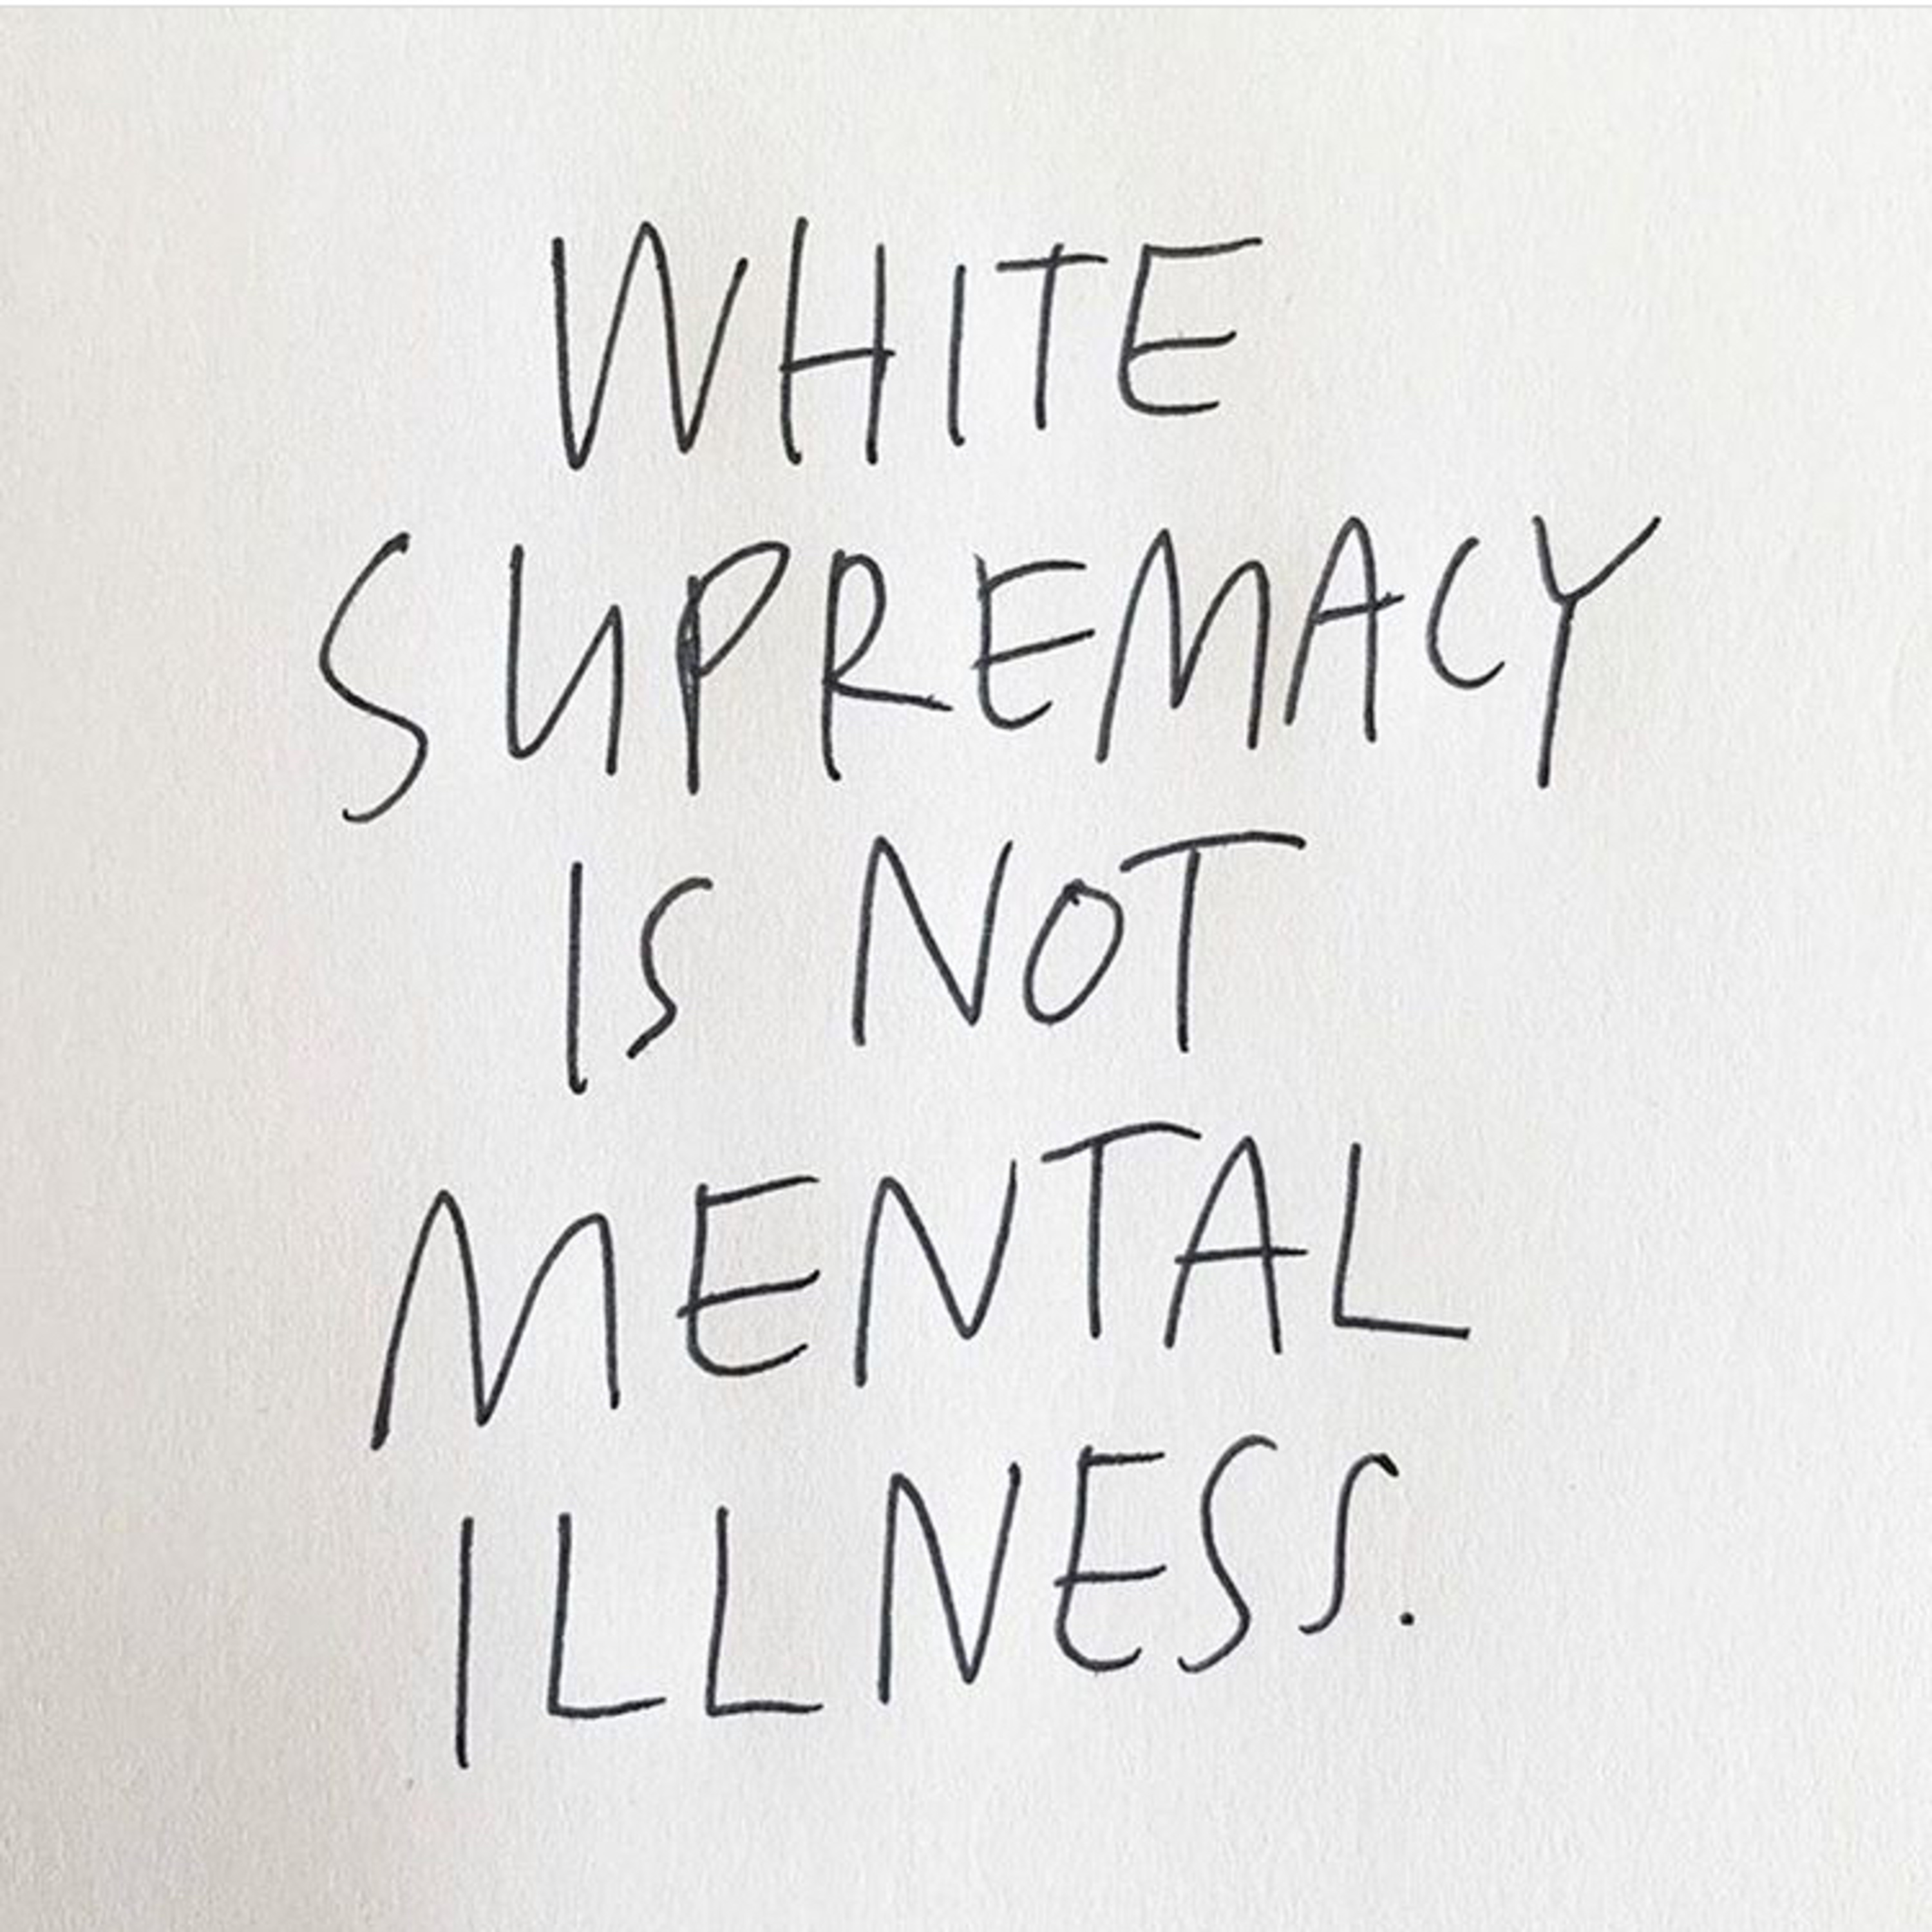 WHITE
SUPREMACY
IS NOT
MENTAL
ILLNESS.